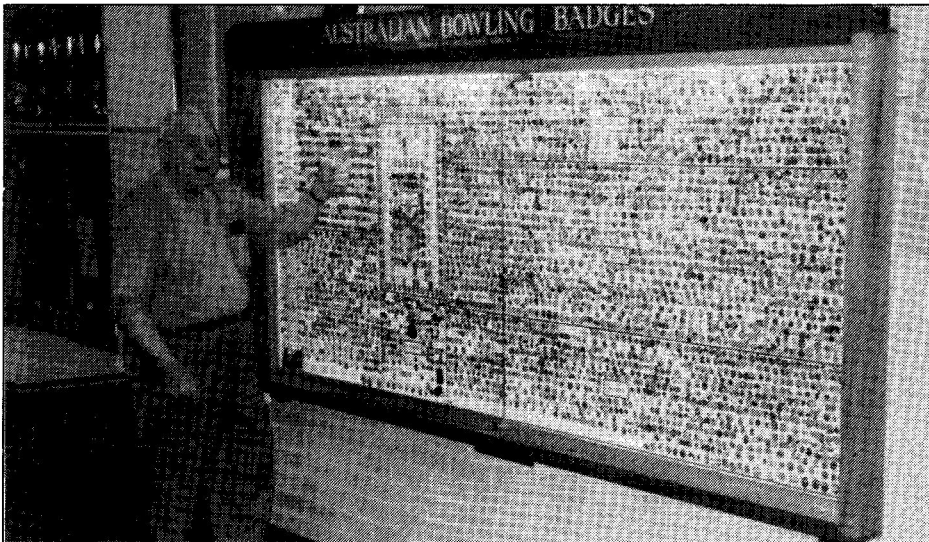 AUSTRALIAN BOWLING BADGES